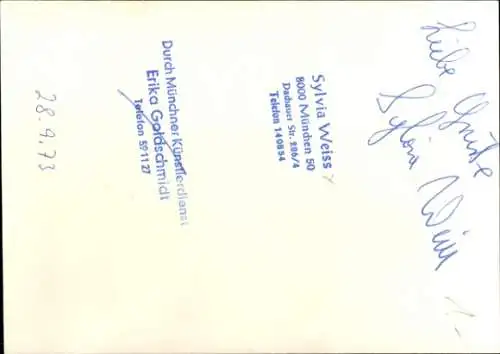 Liebe Grüße
Sylvia Weiss
Sylvia Weiss
8000 München 50
Dachauer Str. 286/4
Telefon 140854
Durch Münchner Künstlerdienst
Erika Goldschmidt
Telefon 591127
28.9.73